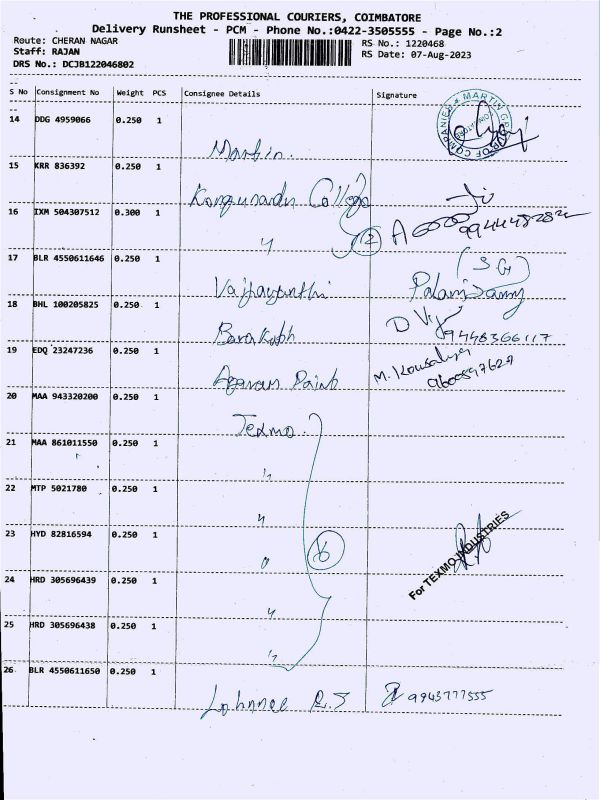 THE PROFESSIONAL COURIERS, COIMBATORE
Delivery Runsheet - PCM - Phone No.:0422-3505555 - Page No.:2
Route: CHERAN NAGAR RS No.: 1220468
Staff: RAJAN RS Date: 07-Aug-2023
DRS No.: DCJB122046802
S No Consignment No Weight PCS Consignee Details Signature
14 DDG 4959066 0.250 1
MARTIN GROUP OF COMPANIES
Martin.
15 KRR 836392 0.250 1
Kongunadu College
16 IXM 504307512 0.300 1
" 2
17 BLR 4550611646 0.250 1
(SG)
Vaijayanthi Palanisamy
18 BHL 100205825 0.250 1
D
9448366117
19 EDQ 23247236 0.250 1
M. Kousalya
9600897627
20 MAA 943320200 0.250 1
Texmo
21 MAA 861011550 0.250 1
"
22 MTP 5021780 0.250 1
"
23 HYD 82816594 0.250 1
6
For TEXMO INDUSTRIES
"
24 HRD 305696439 0.250 1
"
25 HRD 305696438 0.250 1
"
26 BLR 4550611650 0.250 1
R.S 9943777555